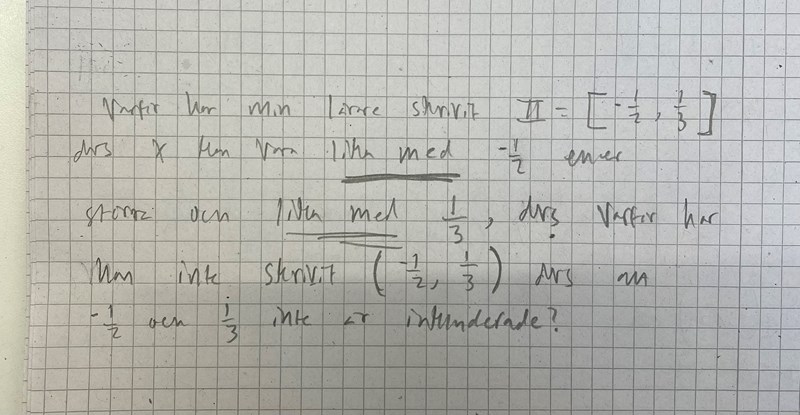 Varför har min lärare skrivit II = [-1/2, 1/3]
dvs x kan vara lika med -1/2 eller
större och lika med 1/3, dvs varför har
man inte skrivit (-1/2, 1/3) dvs att
-1/2 och 1/3 inte är inkluderade?